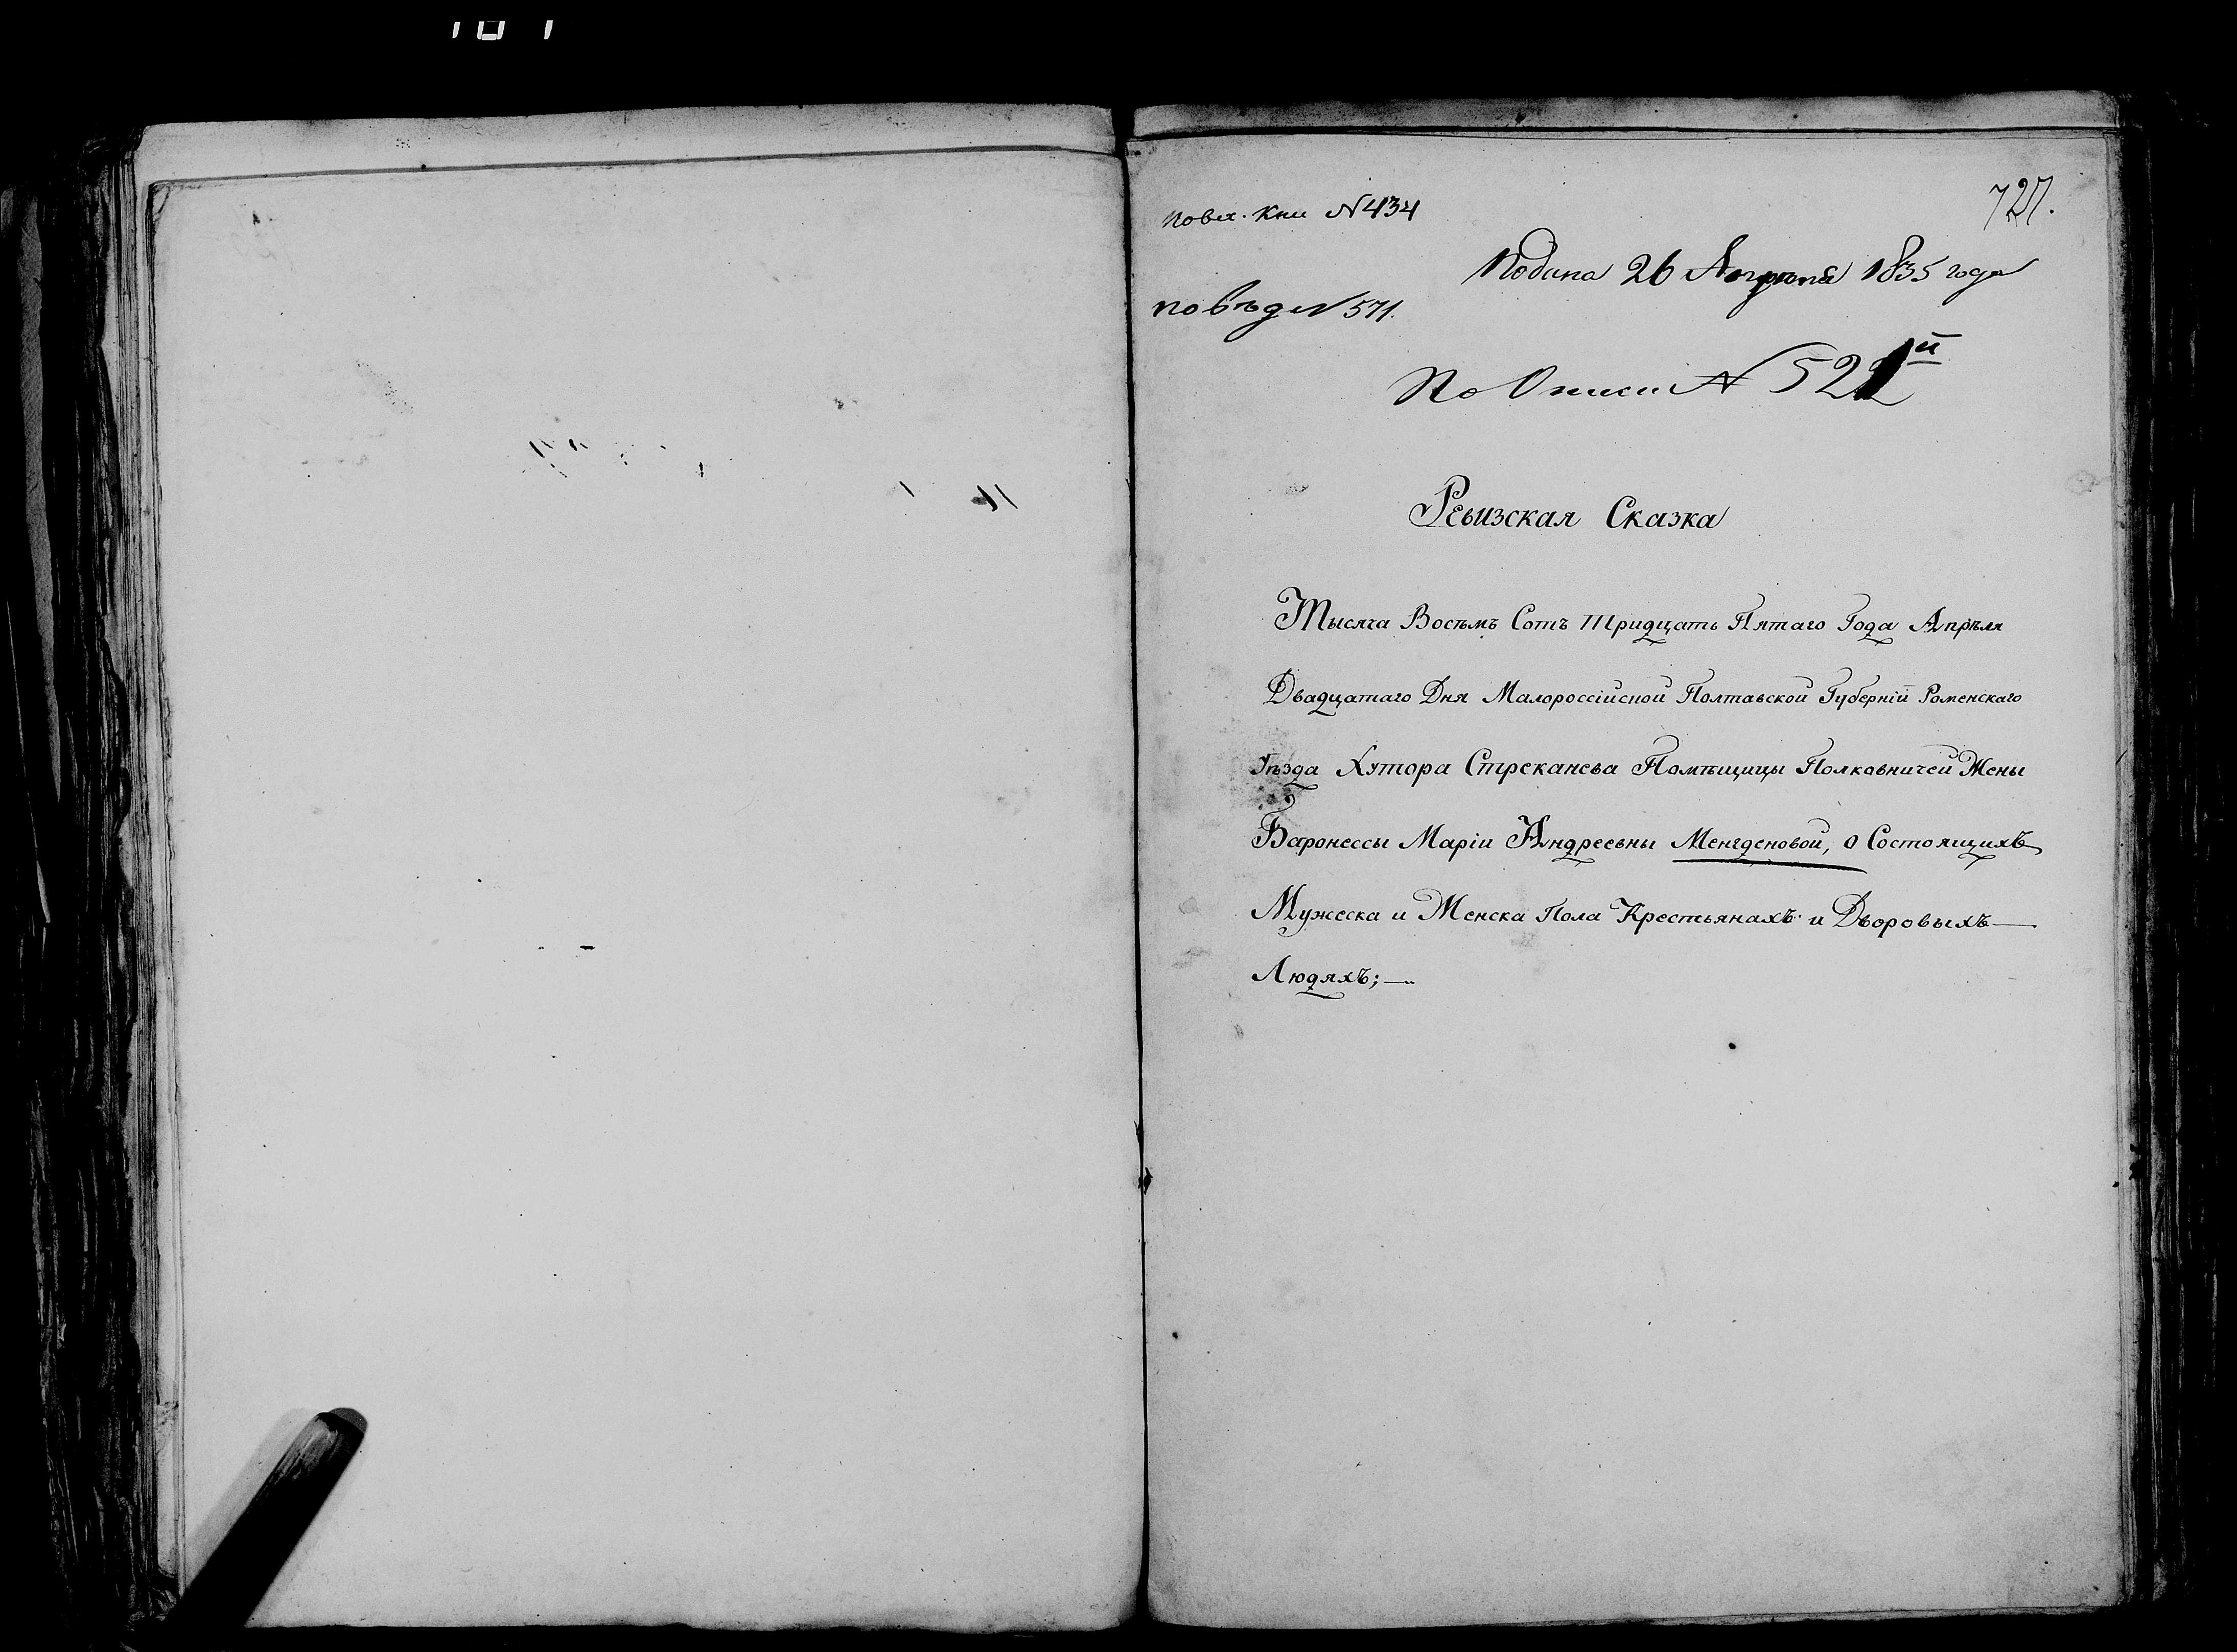 727.
по вх. Кни №434
Подана 26 Апреля 1835 года
по вѣд №571.
По Описи № 522й
Ревизская Сказка
Тысяча Восемъ Сотъ Тридцать Пятаго Года Апрѣля
Двадцатаго Дня Малороссійской Полтавской Губерніи Роменскаго
Уѣзда Хутора Стреканева Помѣщицы Полковничей Жены
Баронессы Маріи Андреевны Менгденовой, О Состоящихъ
Мужеска и Женска Пола Крестьянахъ и Дворовыхъ —
Людяхъ; —